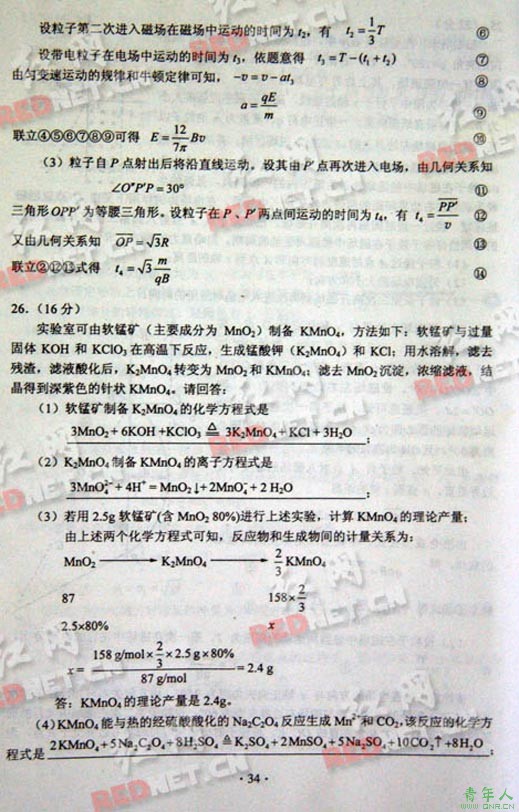 设粒子第二次进入磁场在磁场中运动的时间为 t₂，有 t₂=1/3 T ⑥
设带电粒子在电场中运动的时间为 t₃，依题意得 t₃=T-(t₁+t₂) ⑦
由匀变速运动的规律和牛顿定律可知， -v=v-at₃ ⑧
a=qE/m ⑨
联立④⑤⑥⑦⑧⑨可得 E=12/7π Bv ⑩
（3）粒子自 P 点射出后将沿直线运动，设其由 P′点再次进入电场，由几何关系知
∠O″P′P=30° ⑪
三角形 OPP′为等腰三角形。设粒子在 P 、P′两点间运动的时间为 t₄，有 t₄=PP′/v ⑫
又由几何关系知 OP=√3R ⑬
联立②⑫⑬式得 t₄=√3 m/qB ⑭
26.（16 分）
实验室可由软锰矿（主要成分为 MnO₂）制备 KMnO₄，方法如下：软锰矿与过量
固体 KOH 和 KClO₃在高温下反应，生成锰酸钾（K₂MnO₄）和 KCl；用水溶解，滤去
残渣，滤液酸化后，K₂MnO₄转变为 MnO₂和 KMnO₄；滤去 MnO₂沉淀，浓缩滤液，结
晶得到深紫色的针状 KMnO₄。请回答：
（1）软锰矿制备 K₂MnO₄的化学方程式是
3MnO₂+6KOH+KClO₃ ≜ 3K₂MnO₄+KCl+3H₂O ；
（2）K₂MnO₄制备 KMnO₄的离子方程式是
3MnO₄²⁻+4H⁺=MnO₂↓+2MnO₄⁻+2 H₂O ；
（3）若用 2.5g 软锰矿(含 MnO₂ 80%)进行上述实验，计算 KMnO₄的理论产量；
由上述两个化学方程式可知，反应物和生成物间的计量关系为：
MnO₂ ⟶ K₂MnO₄ ⟶ 2/3 KMnO₄
87 158×2/3
2.5×80% x
x= 158 g/mol×2/3×2.5 g×80% / 87 g/mol =2.4 g
答：KMnO₄的理论产量是 2.4g。
（4）KMnO₄能与热的经硫酸酸化的 Na₂C₂O₄反应生成 Mn²⁺和 CO₂,该反应的化学方
程式是 2KMnO₄+5Na₂C₂O₄+8H₂SO₄ ≜ K₂SO₄+2MnSO₄+5Na₂SO₄+10CO₂↑+8H₂O ；
·34·
红网
REDNET.CN
青年人
www.QNR.CN